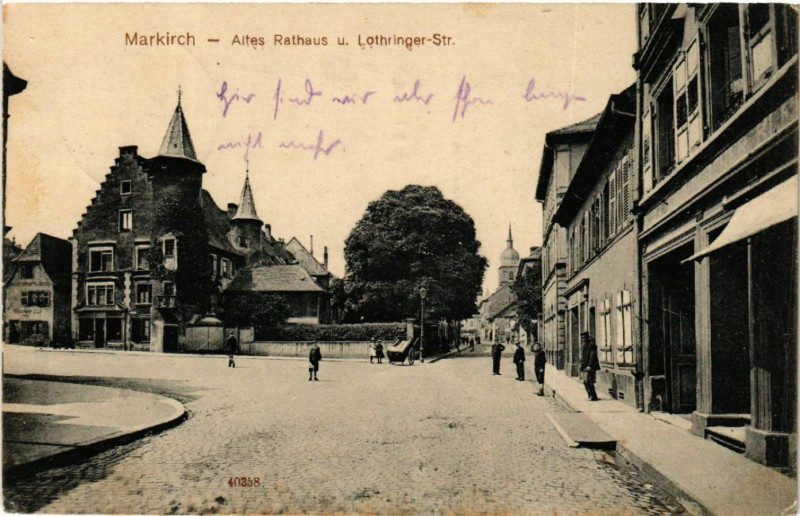 Markirch – Altes Rathaus u. Lothringer-Str.
Hier sind wir aber schon lange
nicht mehr.
40358